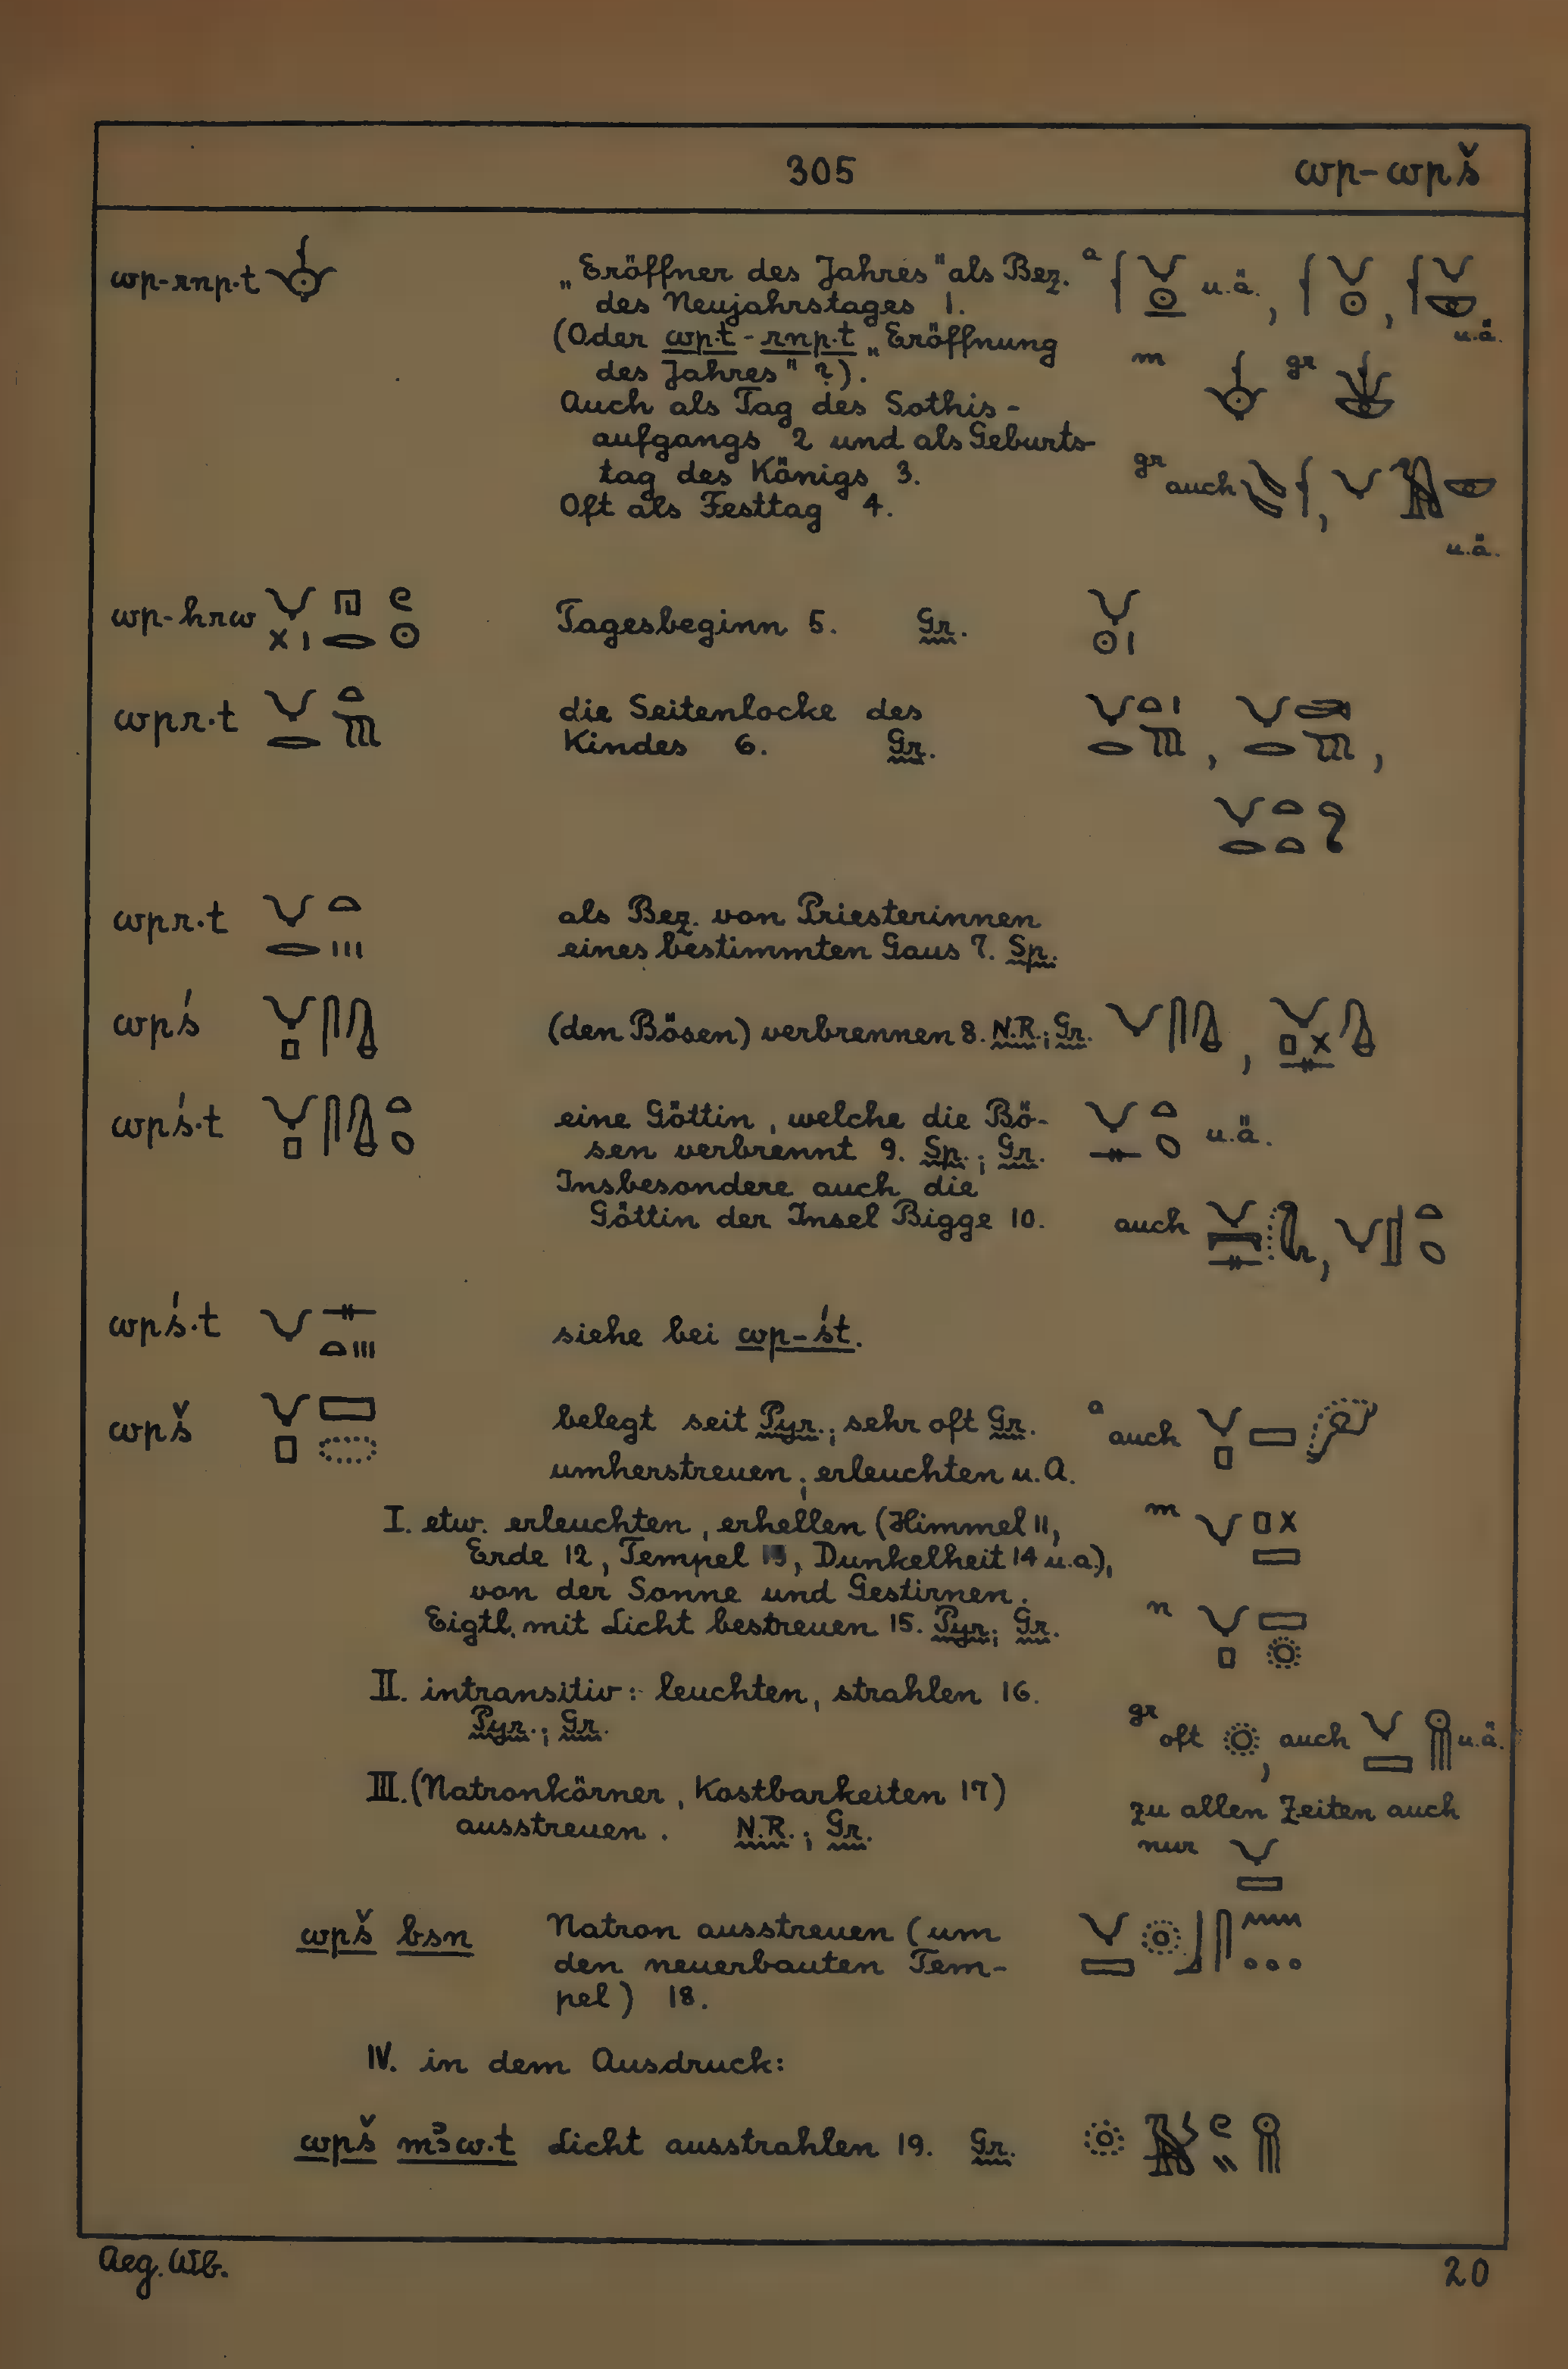 305 wp-wpš
wp-rnp·t „Eröffner des Jahres" als Bez. a u.ä., ,
des Neujahrstages 1. u.ä.
(Oder wp·t-rnp·t „Eröffnung m gr
des Jahres" ?).
Auch als Tag des Sothis-
aufgangs 2 und als Geburts-
tag des Königs 3. gr auch ,
Oft als Festtag 4. u.ä.
wp-hrw Tagesbeginn 5. Gr.
wpr·t die Seitenlocke des
Kindes 6. Gr. , ,
wpr·t als Bez. von Priesterinnen
eines bestimmten Gaus 7. Sp.
wpś (den Bösen) verbrennen 8. N.R.; Gr. ,
wpś·t eine Göttin, welche die Bö- u.ä.
sen verbrennt 9. Sp.; Gr.
Insbesondere auch die
Göttin der Insel Bigge 10. auch ,
wpś·t siehe bei wp-śt.
wpš belegt seit Pyr.; sehr oft Gr. a auch
umherstreuen; erleuchten u.A.
I. etw. erleuchten, erhellen (Himmel 11, m
Erde 12, Tempel 13, Dunkelheit 14 u.a.),
von der Sonne und Gestirnen. n
Eigtl. mit Licht bestreuen 15. Pyr.; Gr.
II. intransitiv: leuchten, strahlen 16.
Pyr.; Gr. gr oft , auch u.ä.
III. (Natronkörner, Kostbarkeiten 17) zu allen Zeiten auch
ausstreuen. N.R.; Gr. nur
wpš bsn Natron ausstreuen (um
den neuerbauten Tem-
pel) 18.
IV. in dem Ausdruck:
wpš mꜣw·t Licht ausstrahlen 19. Gr.
Aeg. Wb. 20